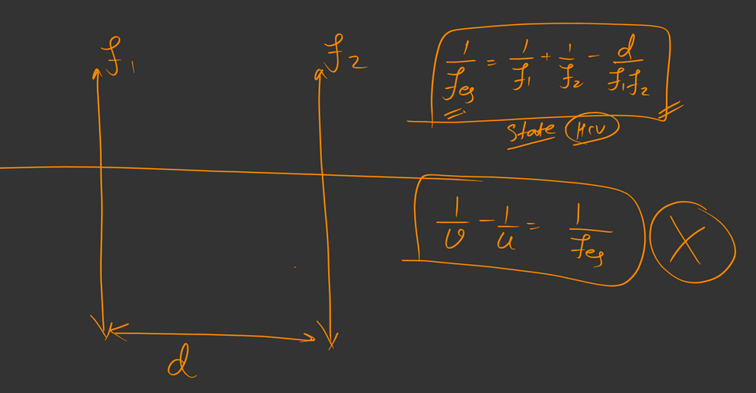 f₁
f₂
1/f_eq = 1/f₁ + 1/f₂ - d/f₁f₂
State
1/v - 1/u = 1/f_eq
d